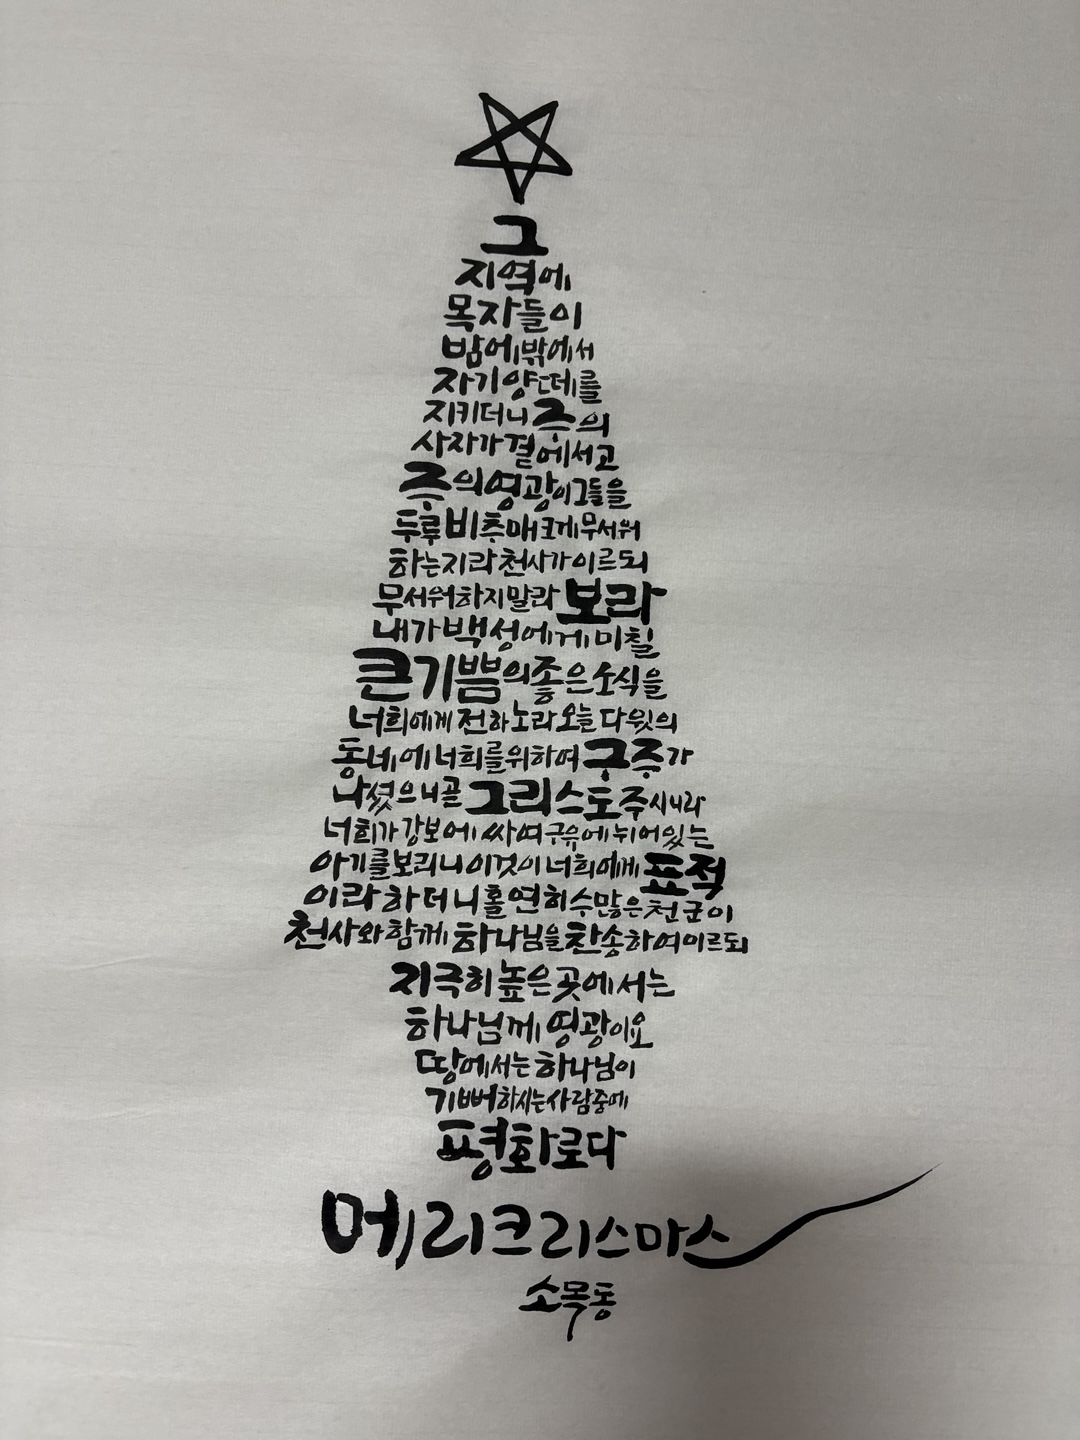 그
지역에
목자들이
밤에 밖에서
자기 양떼를
지키더니 주의
사자가 곁에 서고
주의 영광이 그들을
두루 비추매 크게 무서워
하는지라 천사가 이르되
무서워하지 말라 보라
내가 백성에게 미칠
큰 기쁨의 좋은 소식을
너희에게 전하노라 오늘 다윗의
동네에 너희를 위하여 구주가
나셨으니 곧 그리스도 주시니라
너희가 강보에 싸여 구유에 뉘어 있는
아기를 보리니 이것이 너희에게 표적
이라 하더니 홀연히 수많은 천군이
천사와 함께 하나님을 찬송하여 이르되
지극히 높은 곳에서는
하나님께 영광이요
땅에서는 하나님이
기뻐하시는 사람 중에
평화로다
메리크리스마스
소목동